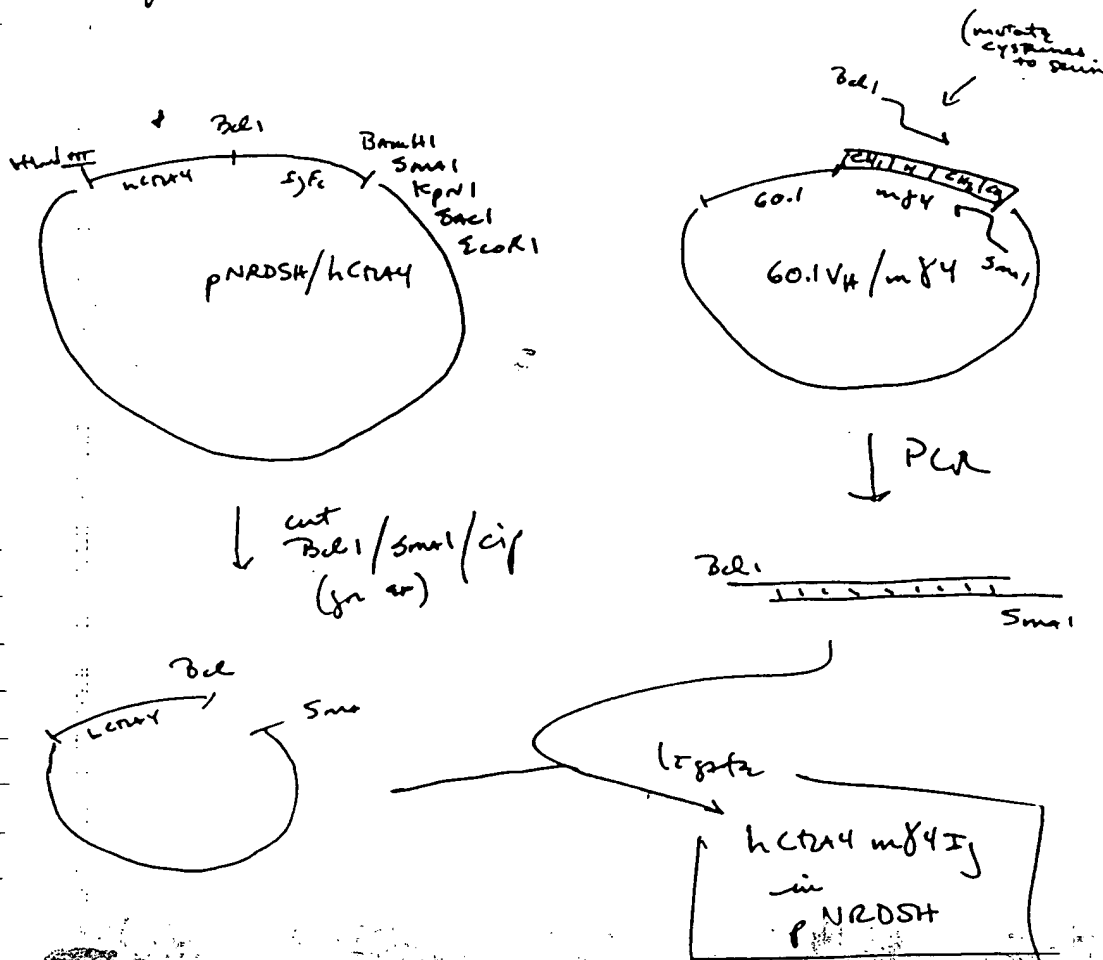 (mutate
cysteines
to serin
Bcl1
Bcl1
HindIII
hCTLA4
IgFc
BamH1
Sma1
Kpn1
Sac1
EcoR1
pNRDSH/hCTLA4
CH1 H CH2 CH3
60.1
mγ4
Sma1
60.1VH/mγ4
PCR
cut
Bcl1/Sma1/cip
Bcl1
Sma1
Bcl
Sma
hCTLA4
ligate
hCTLA4 mγ4Ig
in
pNRDSH